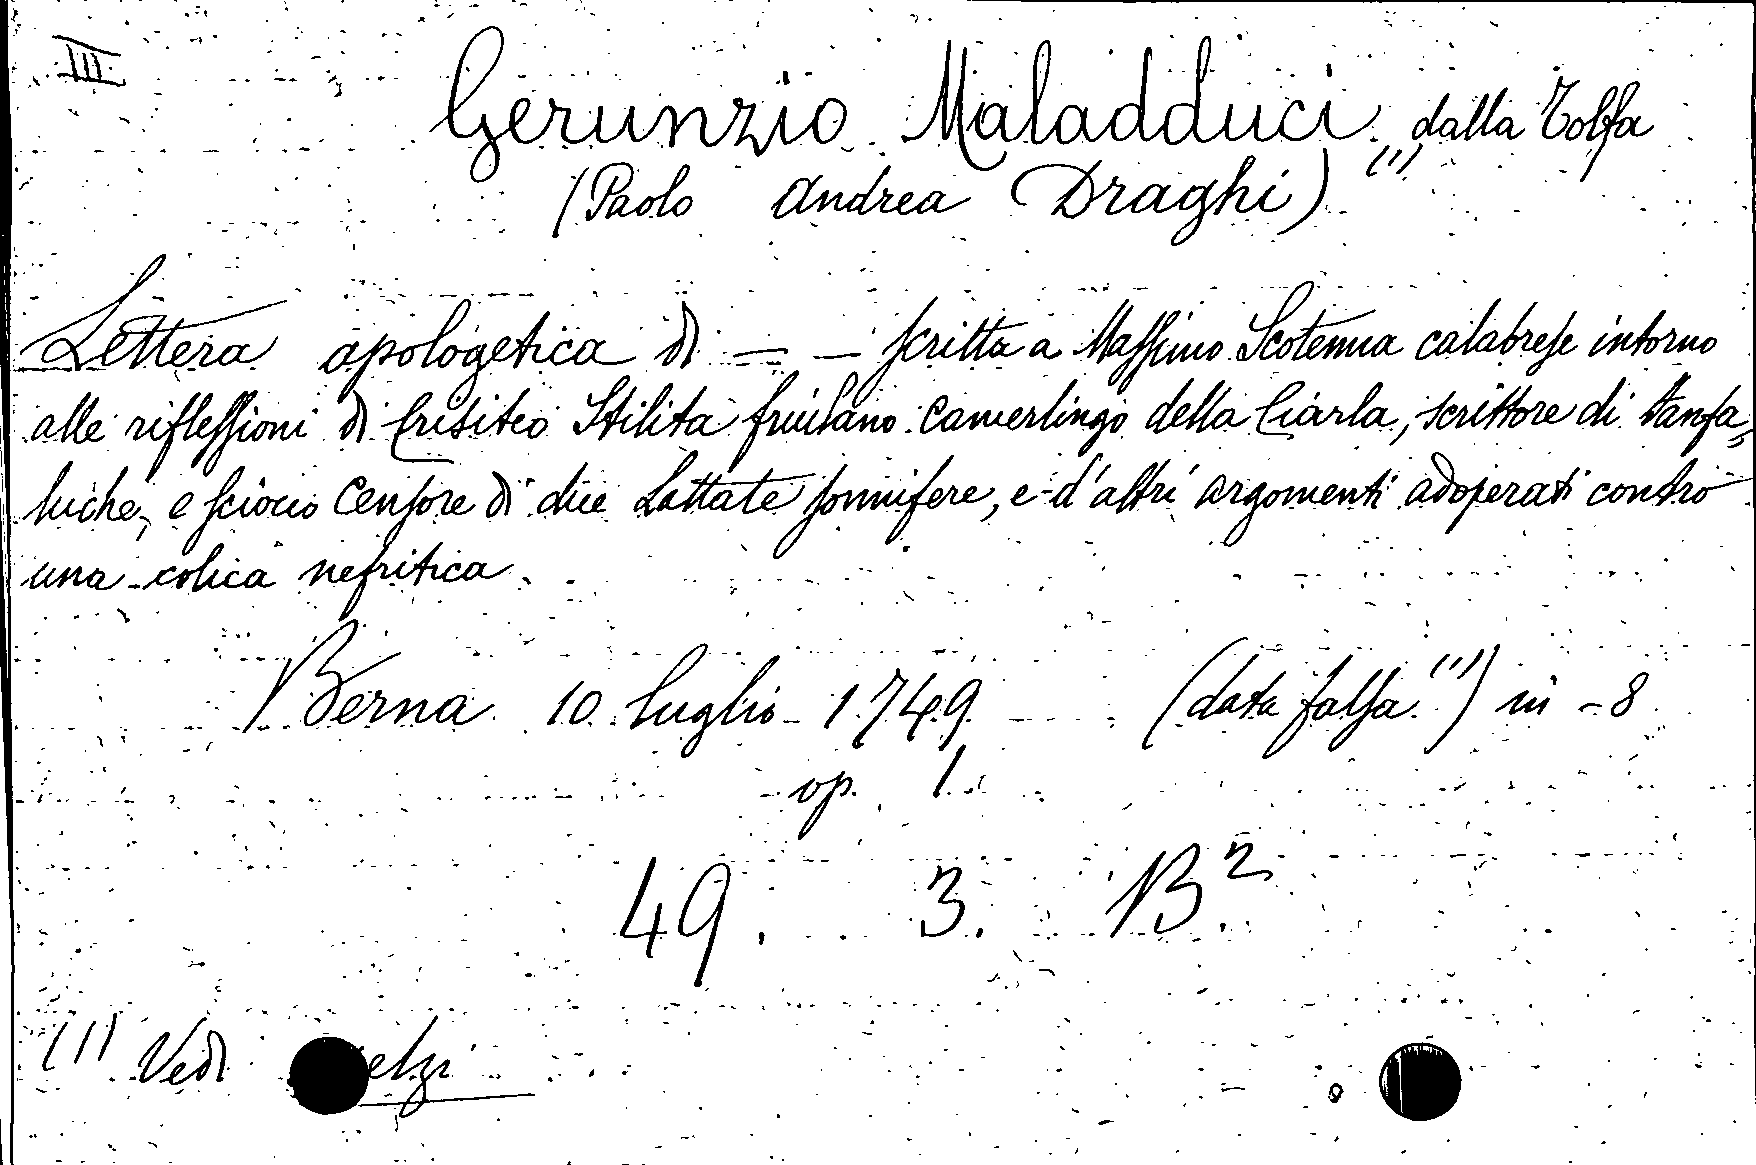 III
Gerunzio Maladduci dalla Tolfa
(Paolo Andrea Draghi) (1)
Lettera apologetica di — — scritta a Massimo Scotenna calabrese intorno
alle riflessioni di Crisiteo Stilita friulano Camerlingo della Ciarla, scrittore di tanfa=
luche, e sciocco Censore di due Lattate sonnifere, e d'altri argomenti adoperati contro
una colica nefritica.
Berna 10 luglio 1749 (data falsa (1)) in -8
op. 1.
49. 3. B2.
(1) Vedi elzi